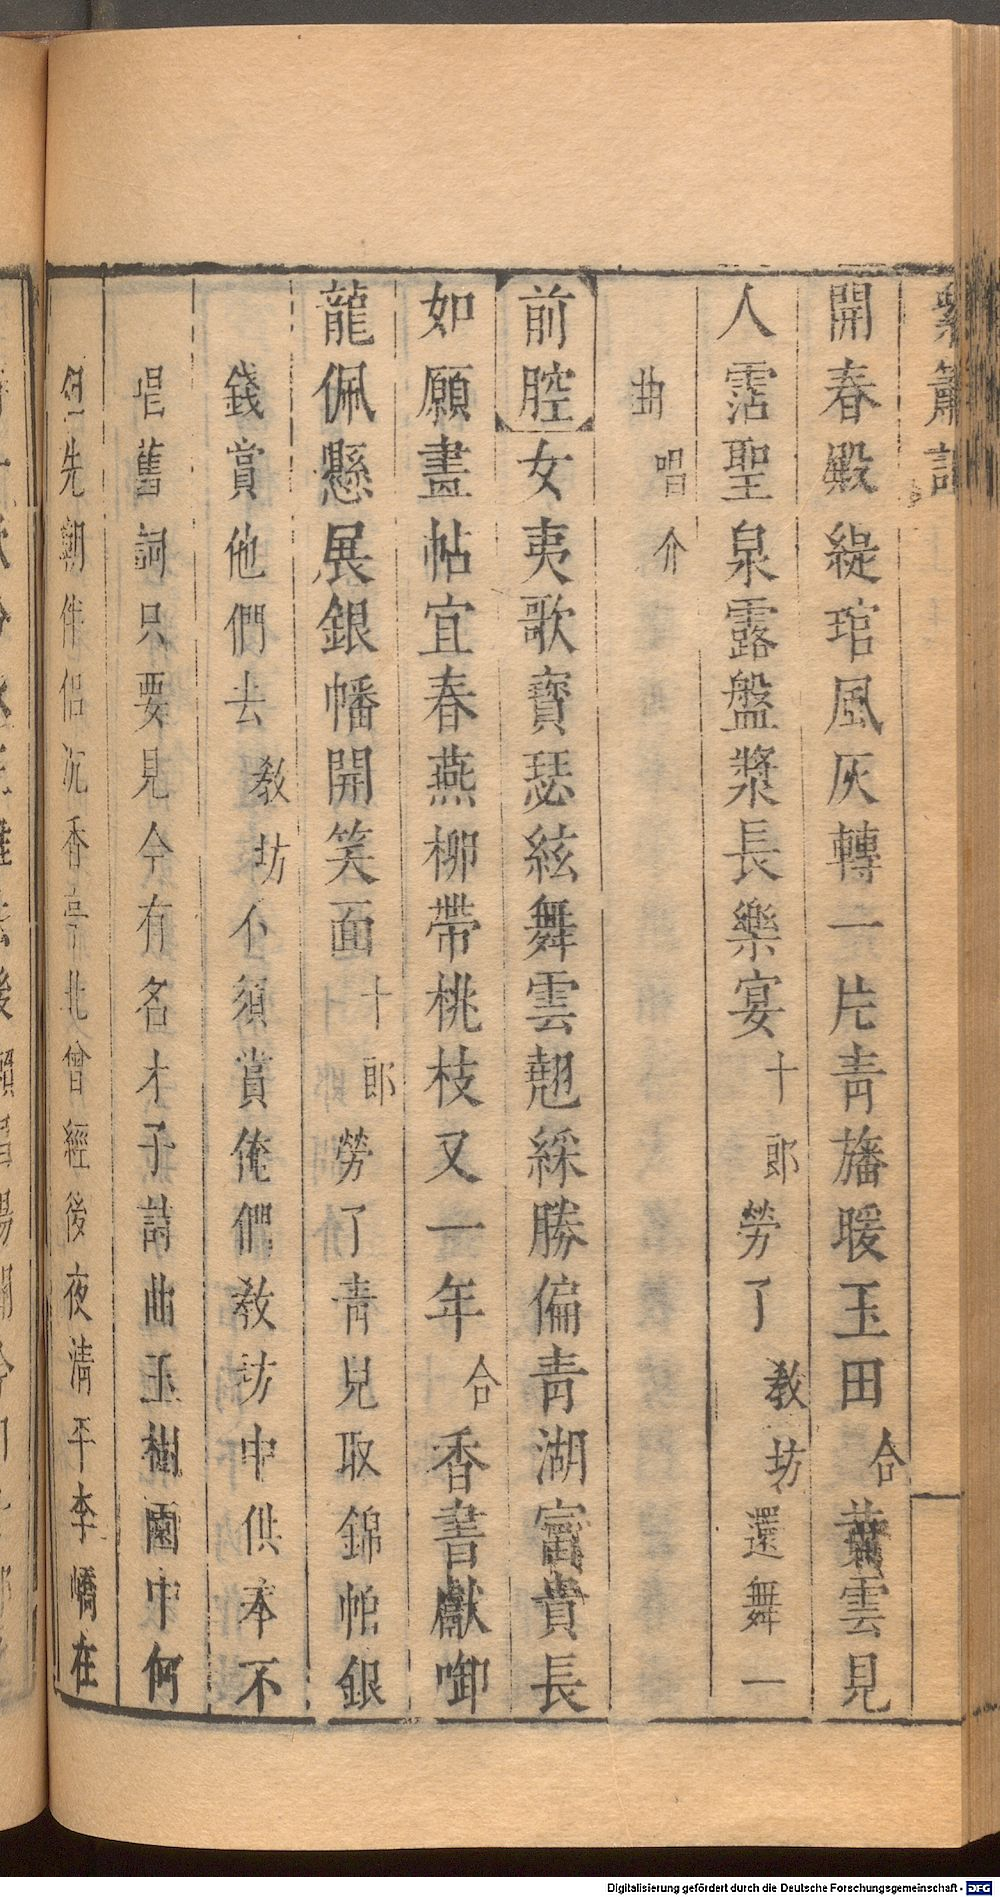 紫簫記
開春殿緹琯風灰轉一片青旛暖玉田合葉雲見
人霑聖泉露盤漿長樂宴十郎勞了教坊還舞一
曲唱介
前腔女夷歌寶瑟絃舞雲翹綵勝偏青湖富貴長
如願畫帖宜春燕柳帶桃枝又一年合香書獻啣
龍佩懸展銀幡開笑面十郎勞了青兒取錦帕銀
錢賞他們去教坊不須賞俺們教坊中供奉不
唱舊詞只要見今有名才子詩曲玉樹園中何
先朝伴侶沉香亭北曾經後夜清平李嶠在
Digitalisierung gefördert durch die Deutsche Forschungsgemeinschaft - DFG